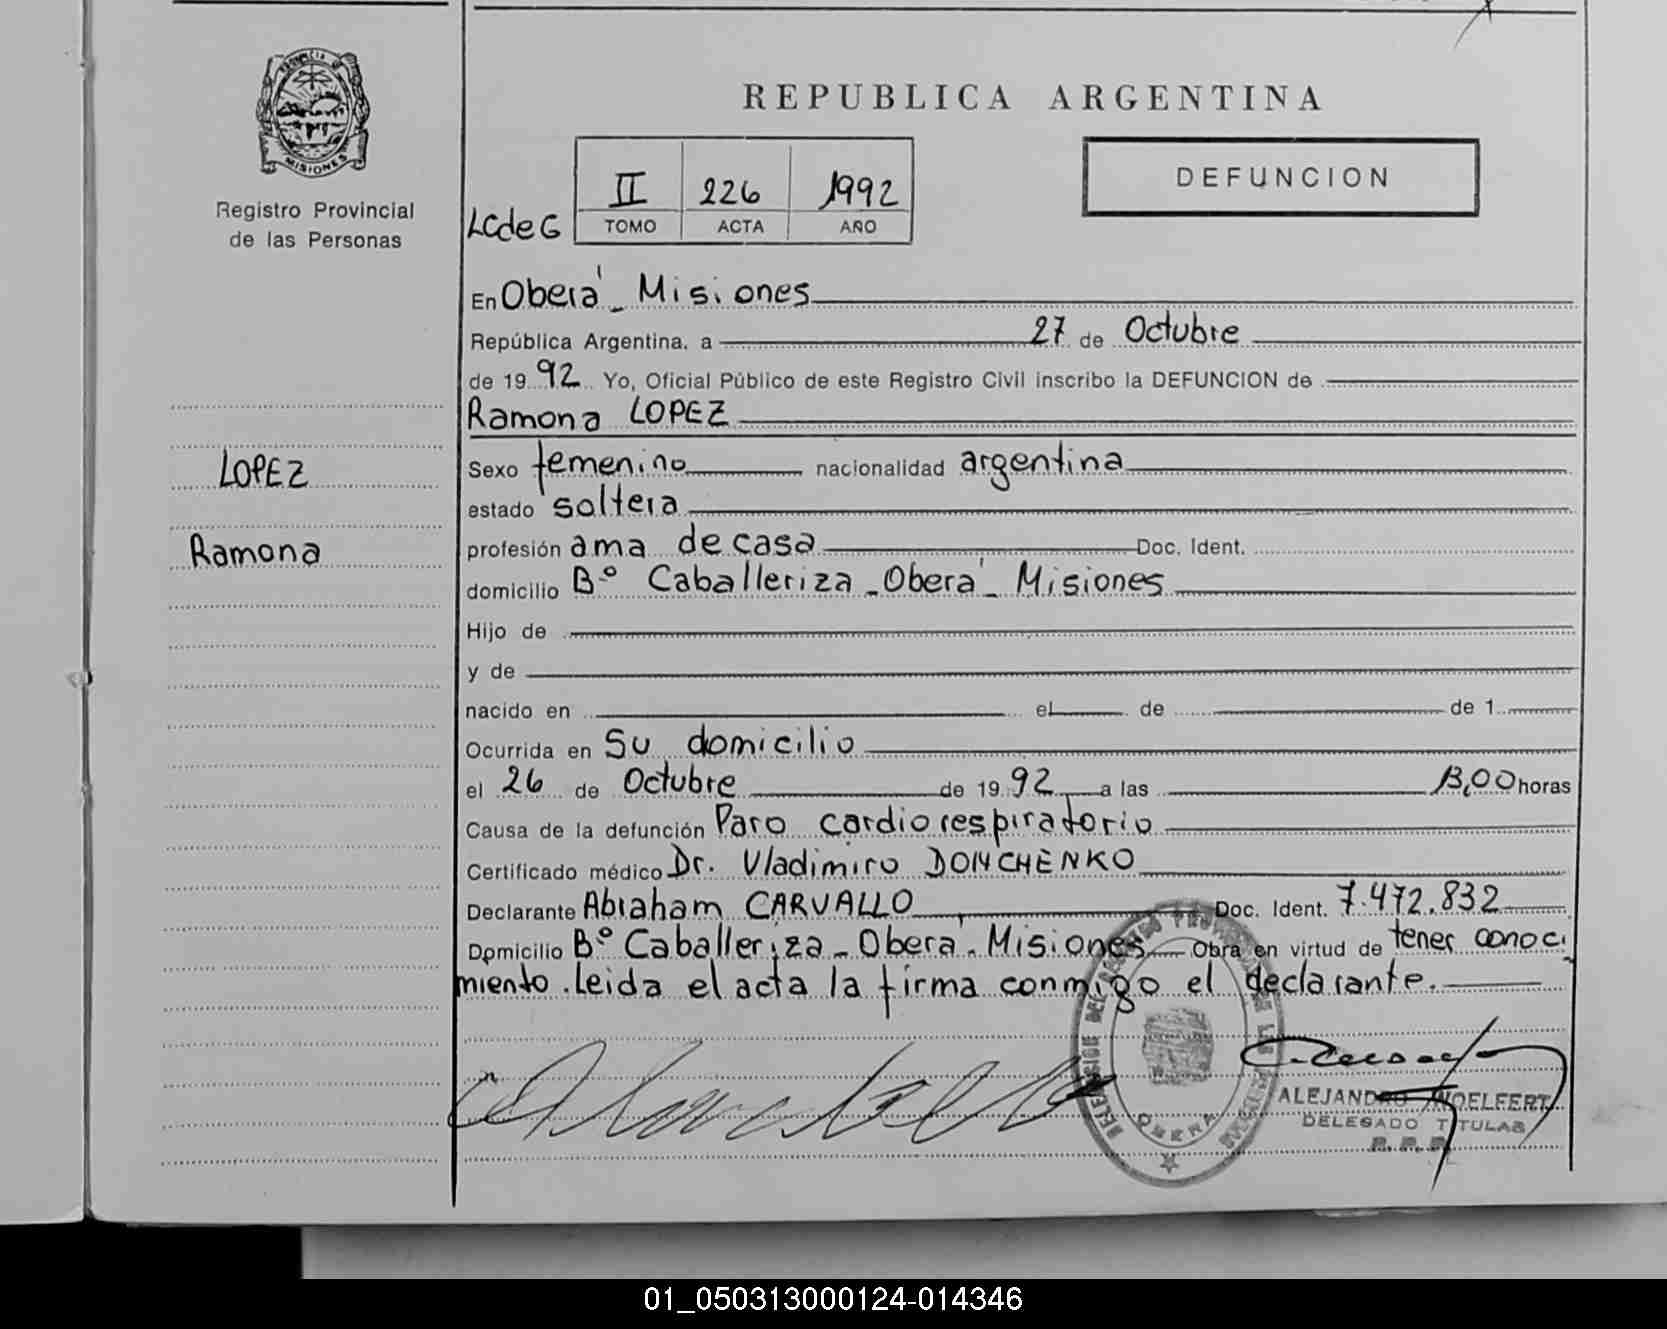 PROVINCIA DE
MISIONES
Registro Provincial
de las Personas
LOPEZ
Ramona
REPUBLICA ARGENTINA
II 226 1992
LCdeG TOMO ACTA AÑO
DEFUNCION
En Oberá - Misiones
República Argentina, a 27 de Octubre
de 19 92 Yo, Oficial Público de este Registro Civil inscribo la DEFUNCION de
Ramona LOPEZ
Sexo femenino nacionalidad argentina
estado soltera
profesión ama de casa Doc. Ident.
domicilio Bº Caballeriza - Oberá - Misiones
Hijo de
y de
nacido en el de de 1
Ocurrida en su domicilio
el 26 de Octubre de 19 92 a las 13,00 horas
Causa de la defunción Paro cardiorespiratorio
Certificado médico Dr. Vladimiro DOMCHENKO
Declarante Abraham CARVALLO Doc. Ident. 7.472.832
Domicilio Bº Caballeriza - Oberá - Misiones Obra en virtud de tener conoci
miento. Leida el acta la firma conmigo el declarante.
OBERA
ALEJANDRO WOELFERT
DELEGADO TITULAR
R.P.P.
01_050313000124-014346